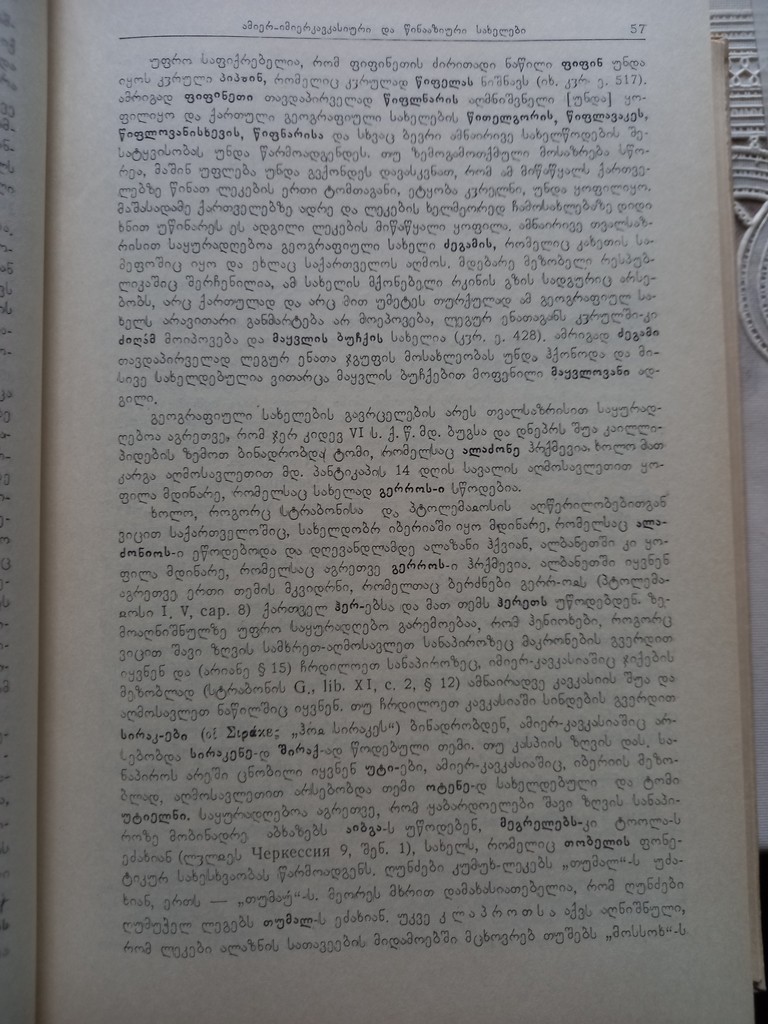 ამიერ-იმიერკავკასიური და წინააზიური სახელები 57
უფრო საფიქრებელია, რომ ფიფინეთის ძირითადი ნაწილი ფიფინ უნდა
იყოს კჳრული პიპჵინ, რომელიც კჳრულად წიფელას ნიშნავს (იხ. კჳრ. ე. 517).
ამრიგად ფიფინეთი თავდაპირველად წიფლნარის აღმნიშვნელი [უნდა] ყო-
ფილიყო და ქართული გეოგრაფიული სახელების წითელგორის, წიფლავაკეს,
წიფლოვანისხევის, წიფნარისა და სხვაც ბევრი ამნაირივე სახელწოდების შე-
სატყვისობას უნდა წარმოადგენდეს. თუ ზემოგამოთქმული მოსაზრება სწო-
რეა, მაშინ უფლება უნდა გვქონდეს დავასკვნათ, რომ ამ მიწაწყალს ქართვე-
ლებზე წინათ ლეკების ერთი ტომთაგანი, ეტყობა კჳრელნი, უნდა ყოფილიყო.
მაშასადამე ქართველებზე ადრე და ლეკების ხელმეორედ ჩამოსახლებაზე დიდი
ხნით უწინარეს ეს ადგილი ლეკების მიწაწყალი ყოფილა. ამნაირივე თვალსაზ-
რისით საყურადღებოა გეოგრაფიული სახელი ძეგამის, რომელიც კახეთის სა-
მეფოშიც იყო და ეხლაც საქართველოს აღმოს. მდებარე მეზობელი რესპუბ-
ლიკაშიც შერჩენილია, ამ სახელის მქონებელი რკინის გზის სადგურიც არსე-
ბობს, არც ქართულად და არც მით უმეტეს თურქულად ამ გეოგრაფიულ სა-
ხელს არავითარი განმარტება არ მოეპოვება, ლეგურ ენათაგანს კჳრულში-კი
მოიპოვება და მაყვლის ბუჩქის სახელია (კჳრ. ე. 428). ამრიგად ძეგამი
თავდაპირველად ლეგურ ენათა ჯგუფის მოსახლეობას უნდა ჰქონოდა და მი-
სივე სახელდებულია ვითარცა მაყვლის ბუჩქებით მოფენილი მაყვლოვანი ად-
გილი.
გეოგრაფიული სახელების გავრცელების არეს თვალსაზრისით საყურად-
ღებოა აგრეთვე, რომ ჯერ კიდევ VI ს. ქ. წ. მდ. ბუგსა და დნეპრს შუა კალლი-
პიდების ზემოთ ბინადრობდა ტომი, რომელსაც ალაძონე ჰრქმევია. ხოლო მათ
კარგა აღმოსავლეთით მდ. პანტიკაპის 14 დღის სავალის აღმოსავლეთით ყო-
ფილა მდინარე, რომელსაც სახელად გერროს-ი სწოდებია.
ხოლო, როგორც სტრაბონისა და პტოლემაჲოსის აღწერილობებითგან
ვიცით საქართველოშიც, სახელდობრ იბერიაში იყო მდინარე, რომელსაც ალა-
ძონიოს-ი ეწოდებოდა და დღევანდლამდე ალაზანი ჰქვიან, ალბანეთში კი ყო-
ფილა მდინარე, რომელსაც აგრეთვე გერროს-ი ჰრქმევია. ალბანეთში იყვნენ
აგრეთვე ერთი თემის მკვიდრნი, რომელთაც ბერძნები გერრ-ოჲს (პტოლემა-
ჲოსი I, V, cap. 8) ქართველ ჰერ-ებსა და მათ თემს ჰერეთს უწოდებდენ. ზე-
მოაღნიშნულზე უფრო საყურადღებო გარემოებაა, რომ ჰენიოხები, როგორც
ვიცით შავი ზღვის სამხრეთ-აღმოსავლეთ სანაპიროზეც მაკრონების გვერდით
იყვნენ და (არიანე § 15) ჩრდილოეთ სანაპიროზეც, იმიერ-კავკასიაშიც ჯიქების
მეზობლად (სტრაბონის G., lib. XI, c. 2, § 12) ამნაირადვე კავკასიის შუა და
აღმოსავლეთ ნაწილშიც იყვნენ. თუ ჩრდილოეთ კავკასიაში სინდების გვერდით
სირაკ-ები (οἱ Σιράκες „ჰოჲ სირაკეს“) ბინადრობდენ, ამიერ-კავკასიაშიც არ-
სებობდა სირაკენე-დ შირაქ-ად წოდებული თემი. თუ კასპიის ზღვის დას. სა-
ნაპიროს არეში ცნობილი იყვნენ უტი-ები, ამიერ-კავკასიაშიც, იბერიის მეზო-
ბლად, აღმოსავლეთით არსებობდა თემი ოტენე-დ სახელდებული და ტომი
უტიელნი. საყურადღებოა აგრეთვე, რომ ყაბარდოელები შავი ზღვის სანაპი-
როზე მობინადრე აბხაზებს აიბგა-ს უწოდებენ, მეგრელებს-კი ტოოლა-ს
ეძახიან (ლჳლჲეს Черкессия 9, შენ. 1), სახელს, რომელიც თობელის ფონე-
ტიკურ სახესხვაობას წარმოადგენს. ღუნძები კუმუხ-ლეკებს „თუმალ“-ს უძა-
ხიან, ერთს — მეორეს მხრით დამახასიათებელია, რომ ღუნძები
ღუმუჰელ ლეგებს თუმალ-ს ეძახიან. უკვე კლაპროთსა აქვს აღნიშნული,
რომ ლეკები ალაზნის სათავეების მიდამოებში მცხოვრებ თუშებს „მოსსოხ“-ს